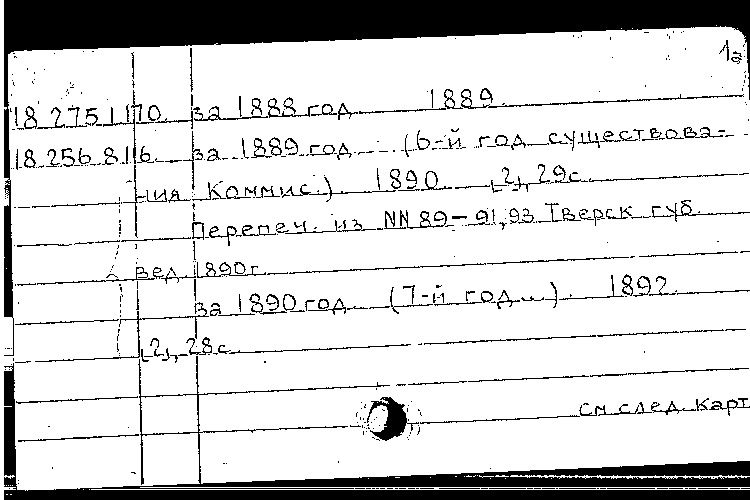 1а
18.275.1.170 за 1888 год. 1889.
18.256.8.116. за 1889 год. (6-й год существова-
ния Коммис.). 1890. [2], 29с.
Перепеч. из NN 89-91, 93 Тверск губ.
вед. 1890г.
за 1890 год. (7-й год...). 1892.
[2], 28с.
См след. карт